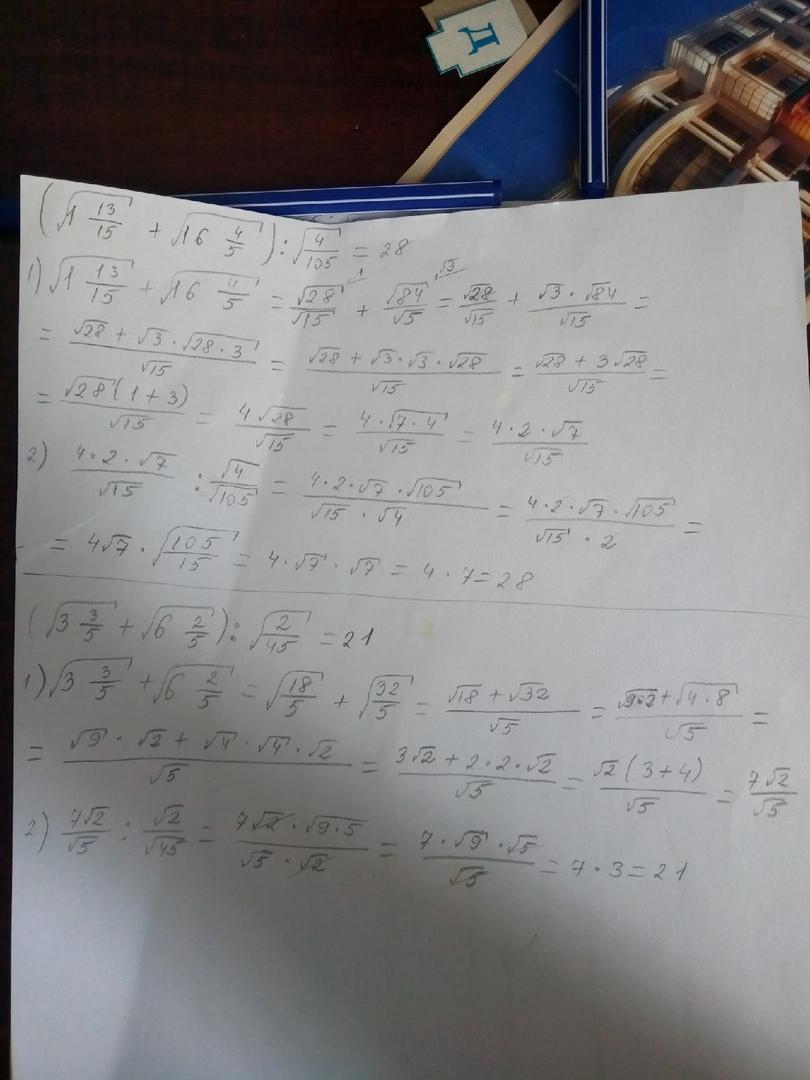 Д
(√(1 13/15) + √(16 4/5)) : √(4/105) = 28
1) √(1 13/15) + √(16 4/5) = √28/√15 ⟋1 + √84/√5 ⟋√3 = √28/√15 + (√3 · √84)/√15 =
= (√28 + √3 · √(28 · 3))/√15 = (√28 + √3 · √3 · √28)/√15 = (√28 + 3√28)/√15 =
= √28(1 + 3)/√15 = 4√28/√15 = 4 · √(7 · 4)/√15 = (4 · 2 · √7)/√15
2) (4 · 2 · √7)/√15 : √4/√105 = (4 · 2 · √7 · √105)/(√15 · √4) = (4 · 2 · √7 · √105)/(√15 · 2) =
= 4√7 · √(105/15) = 4 · √7 · √7 = 4 · 7 = 28
(√(3 3/5) + √(6 2/5)) : √(2/45) = 21
1) √(3 3/5) + √(6 2/5) = √(18/5) + √(32/5) = (√18 + √32)/√5 = (√(9·2) + √(4 · 8))/√5 =
= (√9 · √2 + √4 · √4 · √2)/√5 = (3√2 + 2 · 2 · √2)/√5 = √2(3 + 4)/√5 = 7√2/√5
2) 7√2/√5 : √2/√45 = (7√2 · √(9 · 5))/(√5 · √2) = (7 · √9 · √5)/√5 = 7 · 3 = 21